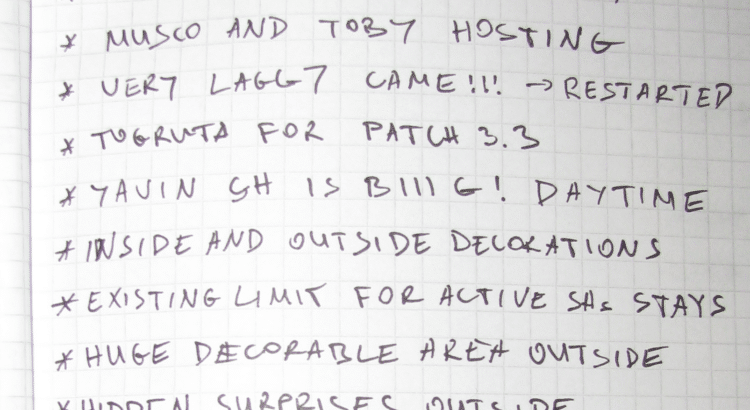 * MUSCO AND TOBY HOSTING
* VERY LAGGY GAME!!! → RESTARTED
* TOGRUTA FOR PATCH 3.3
* YAVIN SH IS BIIIG! DAYTIME
* INSIDE AND OUTSIDE DECORATIONS
* EXISTING LIMIT FOR ACTIVE SHs STAYS
* HUGE DECORABLE AREA OUTSIDE
* HIDDEN SURPRISES OUTSIDE